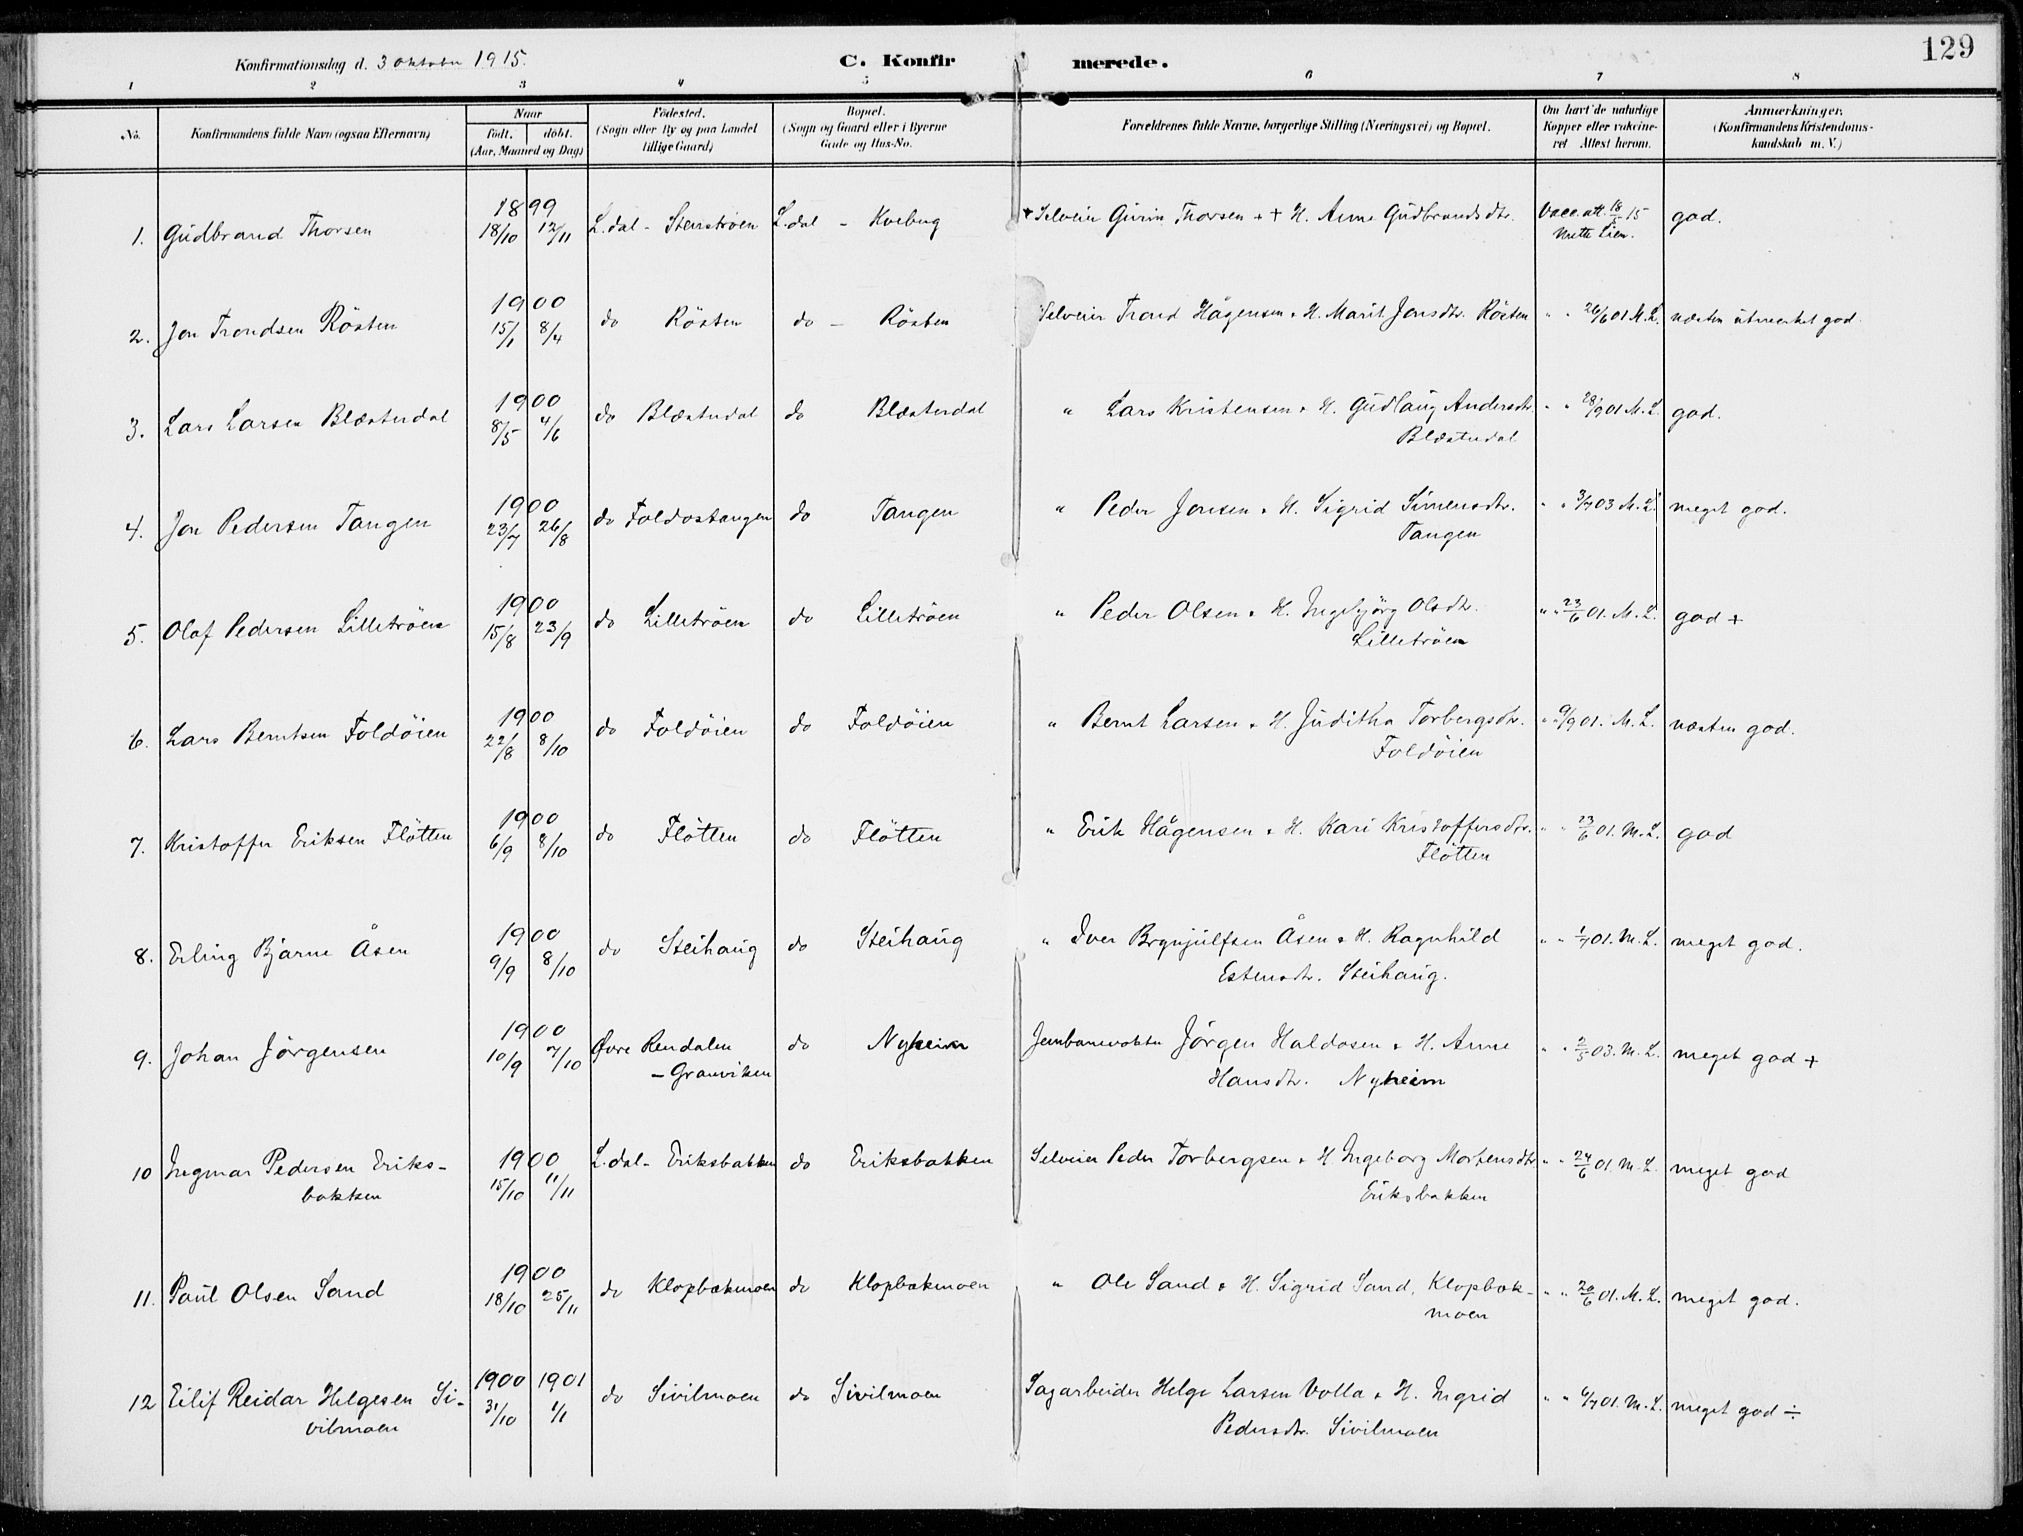 129
Konfirmationsdag d. 3 oktober 1915.
C. Konfirmerede.
1 2 3 4 5 6 7 8
No.
Konfirmandens fulde Navn (ogsaa Efternavn)
Naar
født. døbt.
(Aar, Maaned og Dag)
Fødested.
(Sogn eller By og paa Landet
tillige Gaard)
Bopæl.
(Sogn og Gaard eller i Byerne
Gade og Hus-No.
Forældrenes fulde Navne, borgerlige Stilling (Næringsvei) og Bopæl.
Om havt de naturlige
Kopper eller vakcine-
ret Attest herom.
Anmærkninger.
(Konfirmandens Kristendoms-
kundskab m. V.)
1. Gudbrand Thorsen 1899 18/10 12/11 L.dal - Stenstrøen L.dal - Kvebug Selveier Thorsen + + H. Anne Gudbrandsdtr. Vacc. att. 18/5 15 god.
Mette Lien.
2. Jon Trondsen Røsten 1900 15/1 8/4 do Røsten do - Røsten Selveier Trond Hågensen + H. Marit Jonsdtr. Røsten " " 26/6 01 M. L. næsten utmerket god.
3. Lars Larsen Blæsterdal 1900 8/5 4/6 do Blæsterdal do Blæsterdal " Lars Kristensen + H. Gudlaug Andersdtr. " " 28/9 01 M. L. god.
Blæsterdal
4. Jon Pedersen Tangen 1900 23/7 26/8 do Foldostangen do Tangen " Peder Jonsen + H. Sigrid Simensdtr. " " 3/7 03 M. L. meget god.
Tangen
5. Olaf Pedersen Lilletrøen 1900 15/8 23/9 do Lilletrøen do Lilletrøen " Peder Olsen + H. Ingebjørg Olsdtr. " " 23/6 01. M. L. god +
Lilletrøen
6. Lars Berntsen Foldøien 1900 22/8 8/10 do Foldøien do Foldøien " Bernt Larsen + H. Juditha Torbergsdtr. " " 9/9 01. M. L. næsten god.
Foldøien
7. Kristoffer Eriksen Fløtten 1900 6/9 8/10 do Fløtten do Fløtten " Erik Hågensen + H. Kari Kristoffersdtr. " " 23/6 01. M. L. god
Fløtten
8. Erling Bjarne Åsen 1900 9/9 8/10 do Steihaug do Steihaug " Iver Brynjulfsen Åsen + H. Ragnhild " " 1/7 01. M. L. meget god.
Estensdtr. Steihaug.
9. Johan Jørgensen 1900 10/9 7/10 Øvre Rendalen do Nyheim Jernbanevokter Jørgen Haldosen + H. Anne " " 2/5 03. M. L. meget god +
- Granviken Hansdtr. Nyheim
10 Ingmar Pedersen Eriks- 1900 15/10 11/11 L.dal - Eriksbakken do Eriksbakken Selveier Peder Torbergsen + H. Ingeborg Mortensdtr. " " 24/6 01. M. L. meget god
bakken Eriksbakken
11. Paul Olsen Sand 1900 18/10 25/11 do Klopbakmoen do Klopbakmoen " Ole Sand + H. Sigrid Sand, Klopbak- " " 20/6 01. M. L. meget god.
moen
12 Eilif Reidar Helgesen Si- 1900 31/10 1901 1/1 do Sivilmoen do Sivilmoen Sagarbeider Helge Larsen Volla + H. Ingrid " " 6/7 01. M. L. meget god ÷
vilmoen Pedersdtr. Sivilmoen